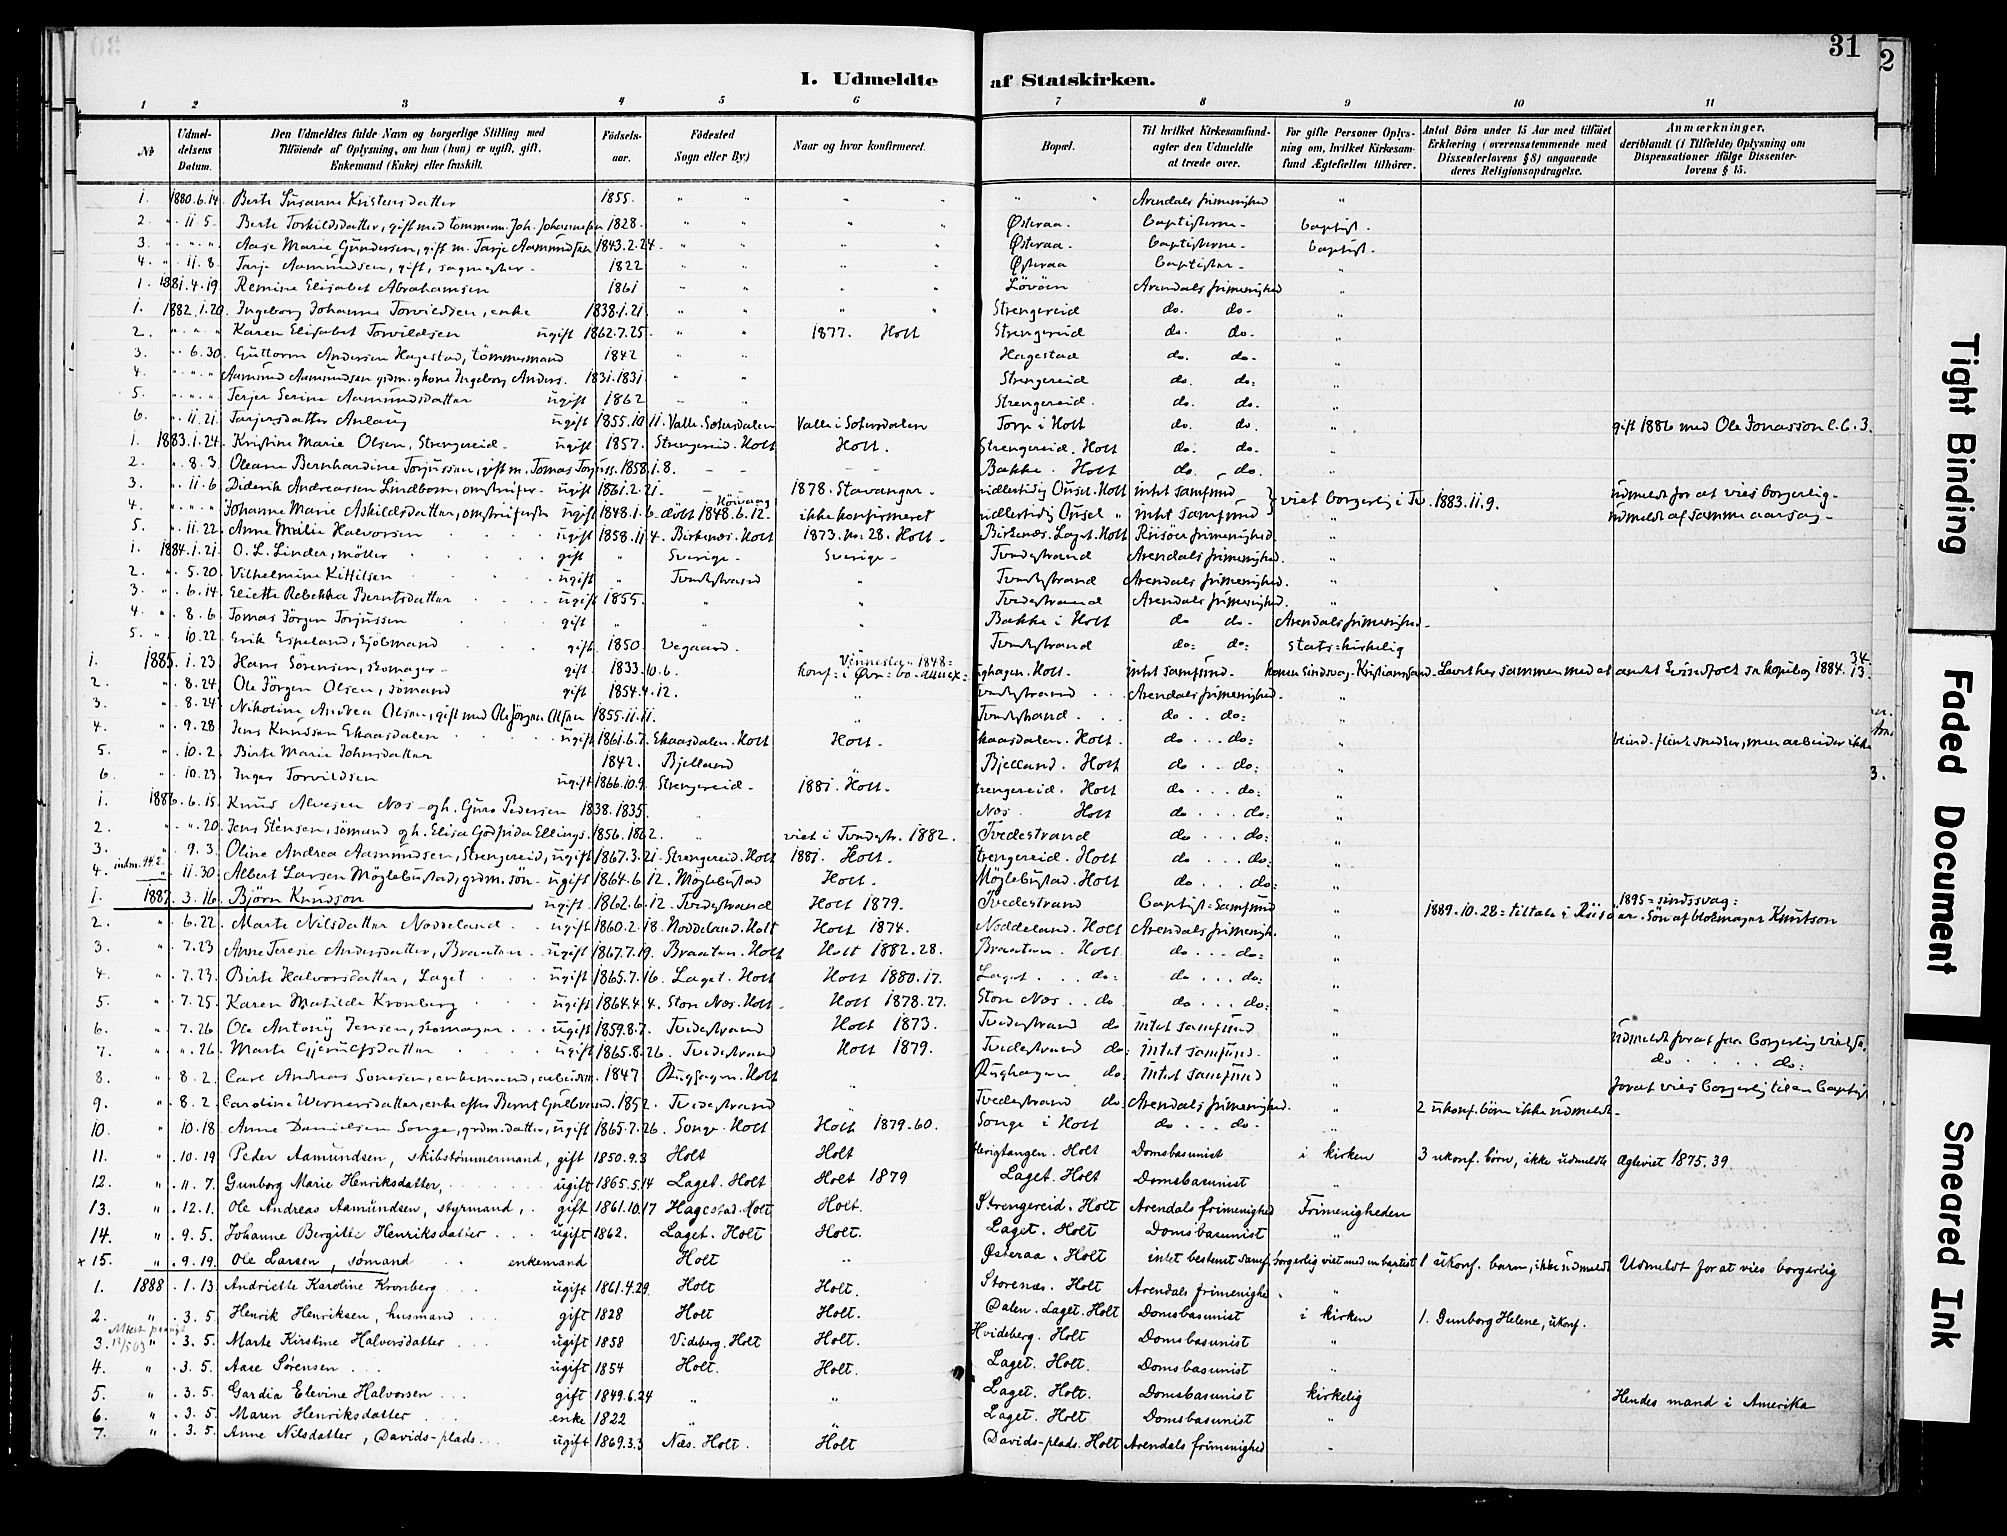 31
2
I. Udmeldte af Statskirken.
1 2 3 4 5 6 7 8 9 10 11
No
Udmeldelsens Datum.
Den Udmeldtes fulde Navn og borgerlige Stilling med
Tilföiende af Oplysning, om han (hun) er ugift, gift,
Enkemand (Enke) eller fraskilt.
Födselsaar.
Födested
Sogn eller By)
Naar og hvor konfirmeret.
Bopæl.
Til hvilket Kirkesamfund
agter den Udmeldte
at træde over.
For gifte Personer Oplysning om, hvilket Kirkesamfund Ægtefællen tilhörer.
Antal Börn under 15 Aar med tilföiet
Erklæring (overensstemmende med
Dissenterlovens § 8) angaaende
deres Religionsopdragelse.
Anmærkninger,
deriblandt (i Tilfælde) Oplysning om
Dispensationer ifölge Dissenterlovens § 15.
1. 1880.6.14. Berte Susanne Kristensdatter 1855. Arendals frimenighed
2. " 11.5. Berte Torkildsdatter, gift med tömmerm. Joh. Johannesen 1828. Østeraa. baptisterne. baptist.
3. " " Aase Marie Gundersen, gift m. Tarje Aamundsen 1843.2.24. Østeraa. baptisterne. baptist.
4. " 11.8. Tarje Aamundsen, gift, sagmester. 1822 Østeraa baptister.
1. 1881.4.19 Remine Elisabet Abrahamsen 1861 Lövöen Arendals frimenighed
1. 1882.1.20. Ingeborg Johanne Torvildsen, enke 1838.1.21. Strengereid do. do.
2. " " Karen Elisabet Torvildsen ugift 1862.7.25. 1877. Holt Strengereid do. do.
3. " 6.30. Guttorm Andersen Hagestad, tömmermand 1842 Hagestad do. do.
4. " " Aamund Aamundsen grdm. gkone Ingeborg Anders. 1831.1831. Strengereid do. do.
5. " " Terjer Serine Aamundsdatter ugift 1862 Strengereid. do. do.
6. " 11.21. Tarjersdatter Anlaug ugift 1855.10.11. Valle. Sætersdalen Valle i Sætersdalen Torp i Holt do. do. gift 1886 med Ole Jonasson
1. 1883.1.24. Kristine Marie Olsen, Strengereid. ugift 1857. Strengereid. Holt Holt. Strengereid. Holt do. do.
2. " 8.3. Oleane Bernhardine Torjussen, gift m. Tomas Torjuss. 1858.1.8. Bakke. Holt do. do.
3. " 11.6. Diderik Andreassen Lindbom, omstreifer. ugift 1861.2.21. 1878. Stavanger. midlertidig Ousel. Holt intet samfund viet borgerlig i Tv. 1883.11.9. udmeldt for at vies borgerlig.
4. " " Johanne Marie Askildsdatter, omstreiferske ugift 1848.1.6. döbt 1848.6.12. Hövaag ikke konfirmeret midlertidig Ousel " intet samfund udmeldt af samme aarsag.
5. " 11.22. Anne Malie Halvorsen ugift 1858.11.4. Birkenæs. Holt 1873. no. 28. Holt. Birkenæs. Laget. Holt Risöer frimenighed.
1. 1884.1.21. O. L. Linder, möller gift " Sverige. Sverige. Tvedestrand Arendals frimenighed.
2. " 5.20. Vilhelmine Kittilsen ugift " Tvedestrand Tvedestrand Arendals frimenighed.
3. " 6.14. Eliette Rebekka Berntsdatter ugift 1855. Tvedestrand Arendals frimenighed.
4. " 8.6. Tomas Jörgen Torjussen gift " Bakke i Holt do do. Arendals frimenighed.
5. " 10.22. Erik Espeland, Sjöbmand gift. 1850. Vegaard. Tvedestrand do: do: stats-kirkelig
1. 1885.1.23. Hans Sörensen, skomager. gift. 1833.10.6. Vinneslag 1848: konf: i annex: Rughagen. Holt. intet samfund.
2. " 8.24. Ole Jörgen Olsen, sömand gift 1854.4.12. Tvedestrand Arendals frimenighed.
3. " 8.24. Nikoline Andrea Olsen, gift med Ole Jörgen Olsen 1855.11.11. Tvedestrand. do. do:
4. " 9.28. Jens Knudsen Ekaasdalen ugift 1861.6.7. Ekaasdalen. Holt Holt. Ekaasdalen. Holt. do. do: blind.
5. " 10.2. Birte Marie Johnsdatter 1842. Bjelland Bjelland. Holt do. do:
6. " 10.23. Inger Torvildsen ugift 1866.10.9. Strengereid. 1881. Holt. Strengereid. Holt do. do:
1. 1886.6.15. Knud Alvesen Næs. gh. Guro Pedersen 1838.1835. Næs. Holt do. do:
2. " " 20. Jens Stensen, sömand gh. Elisa Godfrida Ellings. 1856.1862. viet i Tvedestr. 1882. Tvedestrand do. do:
3. " 9.3. Oline Andrea Aamundsen, Strengereid, ugift 1867.3.21. Strengereid. Holt 1881. Holt. Strengereid. Holt do. do:
4. indm. 94.2. " 11.30. Albert Larsen Möglebustad, grdm. sön. ugift 1864.6.12. Möglebustad Holt. Möglebustad. Holt do. do:
1. 1887.3.16. Björn Knudson ugift 1862.6.12. Tvedestrand Holt 1879. Tvedestrand Baptist-Samfund 1889.10.28: tiltale i Risöer. Sön af blokmager Knutson 1895 = sindssvag:
2. " 6.22. Marte Nilsdatter Noddeland ugift 1860.2.18. Noddeland. Holt Holt 1874. Noddeland. Holt Arendals frimenigh.
3. " 7.23. Anne Terese Andersdatter, Braaten ugift 1867.7.19. Braaten. Holt Holt 1882.28. Braaten. Holt do. do:
4. " 7.23. Birte Halvorsdatter, Laget ugift 1865.7.16. Laget. Holt Holt 1880.17. Laget. do: do. do:
5. " 7.25. Karen Matilde Kronberg ugift 1864.4.4. Store Næs. Holt. Holt 1878.27. Store Næs. do do. do:
6. " 7.26. Ole Antony Jensen, skomager. ugift 1859.8.7. Tvedestrand Holt 1873. Tvedestrand do intet samfund udmeldt for at faa borgerlig vielse.
7. " " 26. Marte Gjerulfsdatter ugift 1865.8.26. Tvedestrand Holt 1879. Tvedestrand do: intet samfund. do. do:
8. " 8.2. Carl Andreas Sonesen, enkemand, arbeidsm. 1847 Rughagen. Holt Rughagen do: intet samfund for at vies borgerlig til en baptist
9. " 8.2. Caroline Wernersdatter, enke efter Bernt Gulbrand. 1852. Tvedestrand Tvedestrand do: Arendals frimenighed. 2 ukonf. börn ikke udmeldt.
10. " 10.18. Anne Danielsen Songe, grdm. datter, ugift 1865.7.26. Songe. Holt Holt 1879.60. Songe i Holt do. do.
11. " 10.19 Peder Aamundsen, skibstömmermand, gift 1850.9.3 Holt Holt Holt Domsbasunist i kirken 3 ukonf. börn, ikke udmeldte Ægteviet 1875.39
12. " 11.7. Gunborg Marie Henriksdatter, ugift 1865.5.14 Laget. Holt Holt 1879 Laget. Holt Domsbasunist
13. " 12.1. Ole Andreas Aamundsen, styrmand, gift 1861.10.17 Hagestad. Holt Holt. Strengereid. Holt Arendals frimenighed Frimenigheden
14. " 9.5. Johanne Bergitte Henriksdatter ugift 1862. Laget. Holt Holt. Laget. Holt Domsbasunist
x 15. " 9.19. Ole Larsen, sömand enkemand Holt Østeraa. Holt intet bestemt samf. borgerlig viet med en baptist 1 ukonf. barn, ikke udmeldt Udmeldt for at vies borgerlig
1. 1888.1.13. Andriette Karoline Kronberg ugift 1861.4.29 Holt Holt. Storenæs. Holt Arendals frimenighe
2. " 3.5. Henrik Henriksen, husmand gift 1828 Holt Holt. Dalen. Laget. Holt Domsbasunist i kirken 1. Gunborg Helene, ukonf.
3. " 3.5. Marte Kirstine Halvorsdatter ugift 1858 Videberg. Holt Holt. Hvideberg. Holt Domsbasunist
4. " 3.5. Aase Sørensen ugift 1854 Holt. Holt. Laget. Holt. Domsbasunist
5. " 3.5. Gardia Elevine Halvorsen gift 1849.6.24 Laget. Holt. Domsbasunist kirkelig Hendes mand i Amerika
6. " 3.5. Maren Henriksdatter enke 1822 Laget. Holt Domsbasunist
7. " 3.5. Anne Nilsdatter, Davids-plads. ugift 1869.3.3 Næs. Holt. Holt Davids-plads. Holt Arendals frimenighed
Tight Binding
Faded Document
Smeared Ink